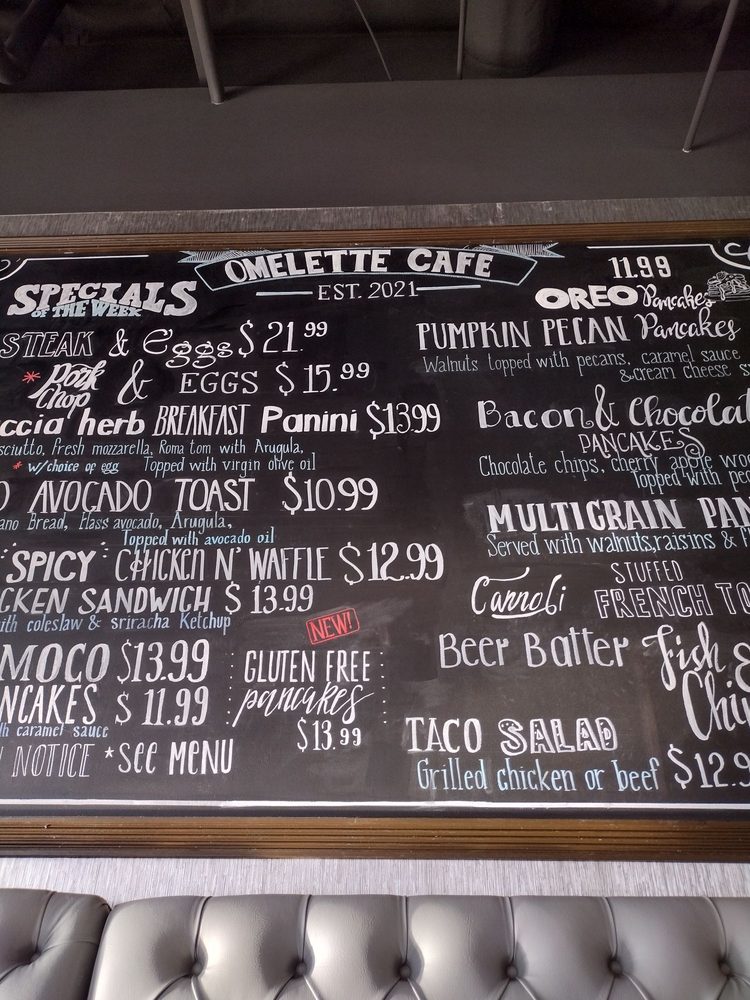 OMELETTE CAFE
EST. 2021
SPECIALS
OF THE WEEK
STEAK & Eggs $21.99
* Pork Chop & EGGS $15.99
ccia herb BREAKFAST Panini $13.99
sciutto, fresh mozzarella, Roma tom with Arugula,
* w/choice of egg Topped with virgin olive oil
O AVOCADO TOAST $10.99
ano Bread, Hass avocado, Arugula,
Topped with avocado oil
SPICY CHICKEN N' WAFFLE $12.99
CKEN SANDWICH $13.99
ith coleslaw & sriracha Ketchup
MOCO $13.99
NCAKES $11.99
th caramel sauce
NOTICE *SEE MENU
NEW!
GLUTEN FREE
pancakes
$13.99
11.99
OREO Pancakes
PUMPKIN PECAN Pancakes
Walnuts topped with pecans, caramel sauce
& cream cheese s
Bacon & Chocolat
PANCAKES
Chocolate chips, cherry apple woo
Topped with pec
MULTIGRAIN PAN
Served with walnuts, raisins & F
Cannoli STUFFED
FRENCH TO
Beer Batter Fish &
Chi
TACO SALAD
Grilled chicken or beef $12.9